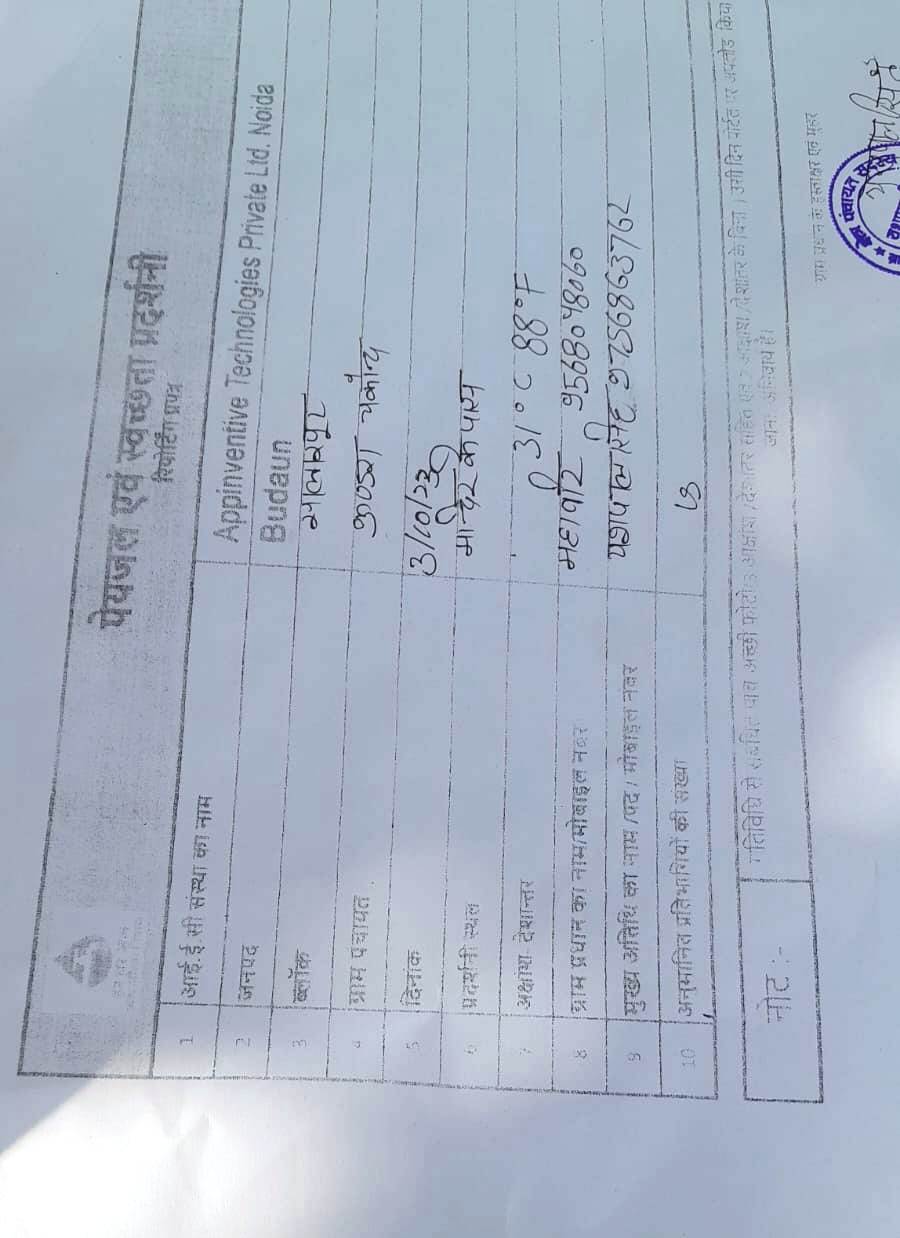 पेयजल एवं स्वच्छता प्रदर्शनी
रिपोर्टिंग प्रपत्र
1 आई.ई सी संस्था का नाम Appinventive Technologies Private Ltd. Noida
2 जनपद Budaun
3 ब्लॉक सालारपुर
4 ग्राम पंचायत
5 दिनांक 3/10/23
6 प्रदर्शनी स्थल मन्दिर के पास
7 अक्षांश देशान्तर 31°C 88°F
8 ग्राम प्रधान का नाम/मोबाइल नंबर महावीर 9568048060
9 मुख्य अतिथि का नाम/पद/मोबाइल नंबर यशपाल सिंह 9756863762
10 अनुमानित प्रतिभागियों की संख्या
नोट :- गतिविधि से संबंधित पांच अच्छी फोटोग्राफ अक्षांश/देशांतर सहित एवं अक्षांश/देशांतर के बिना। उसी दिन पोर्टल पर अपलोड किया
जाना अनिवार्य है।
ग्राम प्रधान के हस्ताक्षर एवं मुहर